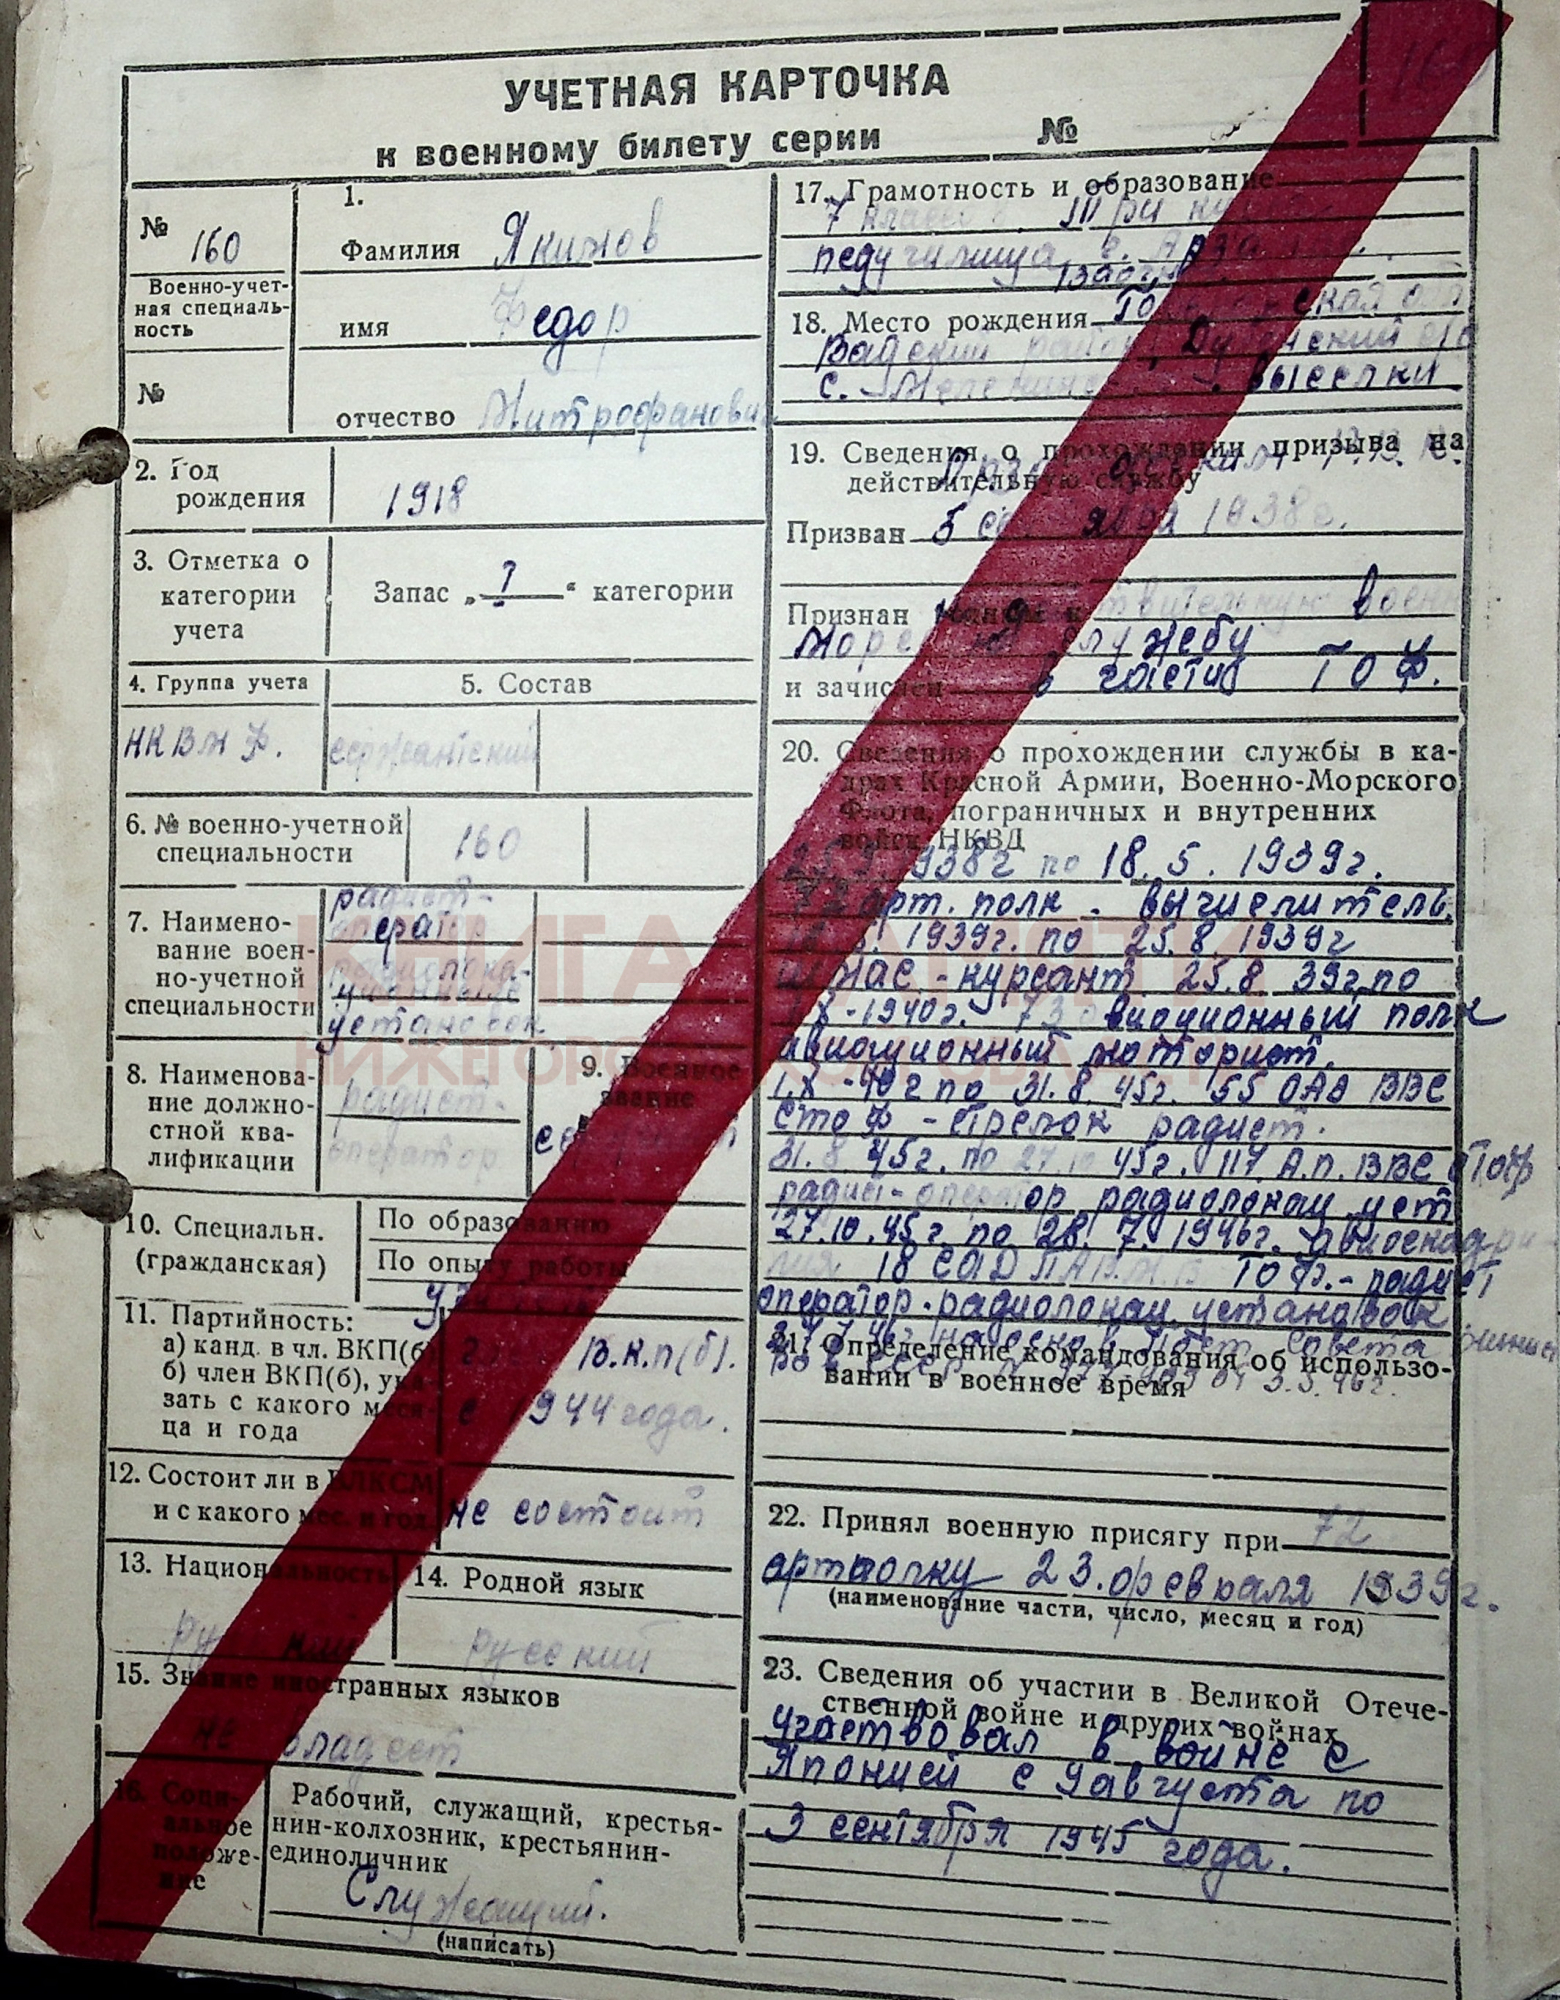 УЧЕТНАЯ КАРТОЧКА
к военному билету серии №
№ 160
Военно-учет-
ная специаль-
ность
№
1.
Фамилия Якимов
имя Федор
отчество Митрофанович
2. Год
рождения
1918
3. Отметка о
категории
учета
Запас „ I “ категории
4. Группа учета
НКВМФ.
5. Состав
сержантский
6. № военно-учетной
специальности
160
7. Наимено-
вание воен-
но-учетной
специальности
радист-
оператор
радиолока-
ционных
установок
8. Наименова-
ние должно-
стной ква-
лификации
радист-
оператор
9. Военное
звание
10. Специальн.
(гражданская)
По образованию
По опыту работы
11. Партийность:
а) канд. в чл. ВКП(б)
б) член ВКП(б), ука-
зать с какого меся-
ца и года
В.К.П(б).
с 1944 года.
12. Состоит ли в ВЛКСМ
и с какого мес. и год
не состоит
13. Национальность
русский
14. Родной язык
русский
15. Знание иностранных языков
не владеет
16. Соци-
альное
положе-
ние
Рабочий, служащий, крестья-
нин-колхозник, крестьянин-
единоличник
Служащий.
(написать)
17. Грамотность и образование
7 классов. Три
педучилища г.
18. Место рождения
Вадский район,
с. выселки
19. Сведения о прохождении призыва на
действительную службу
Призван 5 1938г.
Признан
Морскую службу
и зачислен в части ТОФ.
20. Сведения о прохождении службы в ка-
драх Красной Армии, Военно-Морского
Флота, пограничных и внутренних
войск НКВД
1938г по 18.5.1939г.
72 арт. полк - вычислитель.
1939г. по 25.8.1939г
- курсант 25.8.39г. по
X-1940г. авиационный полк
авиационный моторист.
X-40г по 31.8.45г. 55 ОАЭ ВВС
СТОФ - стрелок радист.
31.8.45г. по 27.10.45г. 117 А.П. ВВС СТОФ
радист-оператор радиолокац. уст
27.10.45г по 28.7.1946г. авиаэскадри-
лия 18 САД ТОФ.- радист
оператор радиолокац. установок
21. Определение командования об использо-
вании в военное время
22. Принял военную присягу при 72
артполку 23. февраля 1939г.
(наименование части, число, месяц и год)
23. Сведения об участии в Великой Отече-
ственной войне и других войнах
участвовал в войне с
Японией с 9 августа по
3 сентября 1945 года.
КНИГА ПАМЯТИ